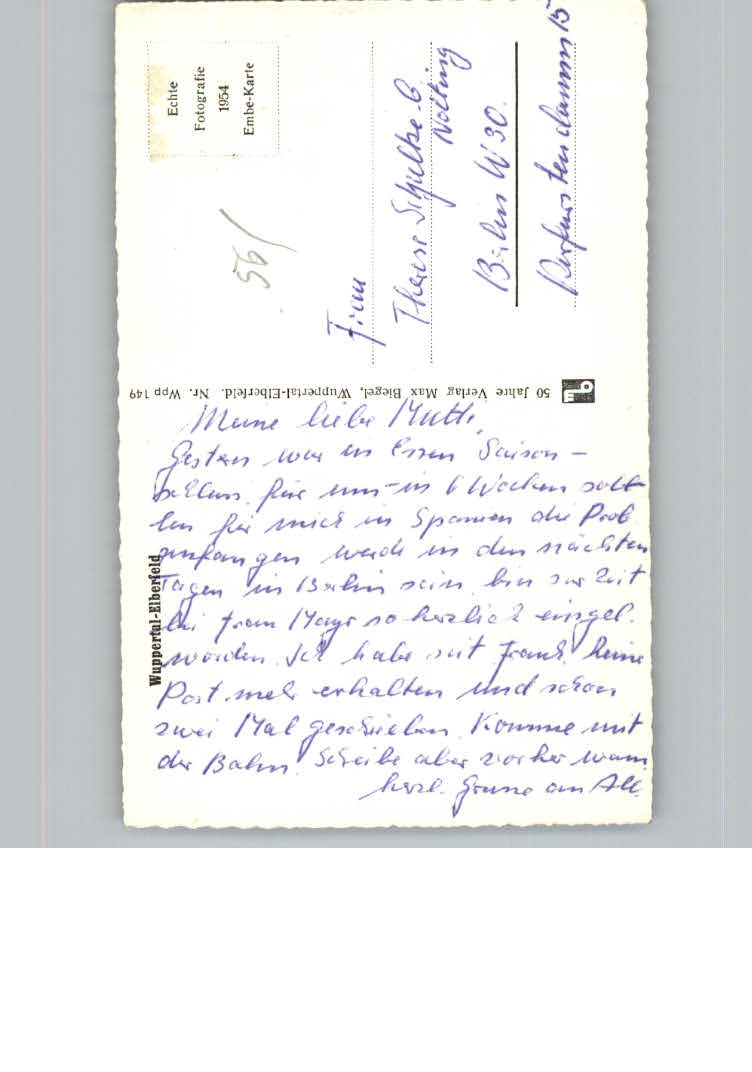 Echte
Fotografie
1954
Embe-Karte
56/
Frau
Therese Schultze b.
Nolting
Berlin W 30.
15
50 Jahre Verlag Max Biegel, Wuppertal-Elberfeld. Nr. Wpp 149
Wuppertal-Elberfeld
Meine liebe Mutti,
Gestern war in Essen Saison-
für uns in 6 Wochen soll-
ten für mich in Spanien die Prob.
anfangen werde in den nächsten
Tagen in Berlin sein bin zur Zeit
bei Frau Mayr so herzlich eingel.
worden. Ich habe seit Frank. keine
Post mehr erhalten und schon
zwei Mal geschrieben. Komme mit
der Bahn. Schreibe aber vorher wann
herzl. Grüsse an All.